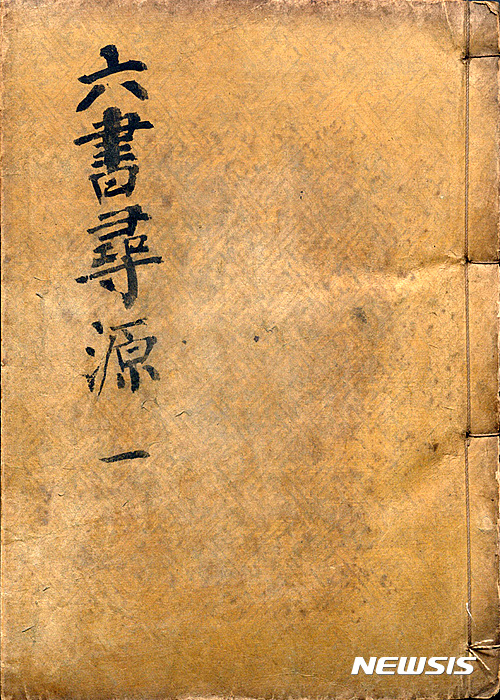 六書尋源 一
NEWSIS